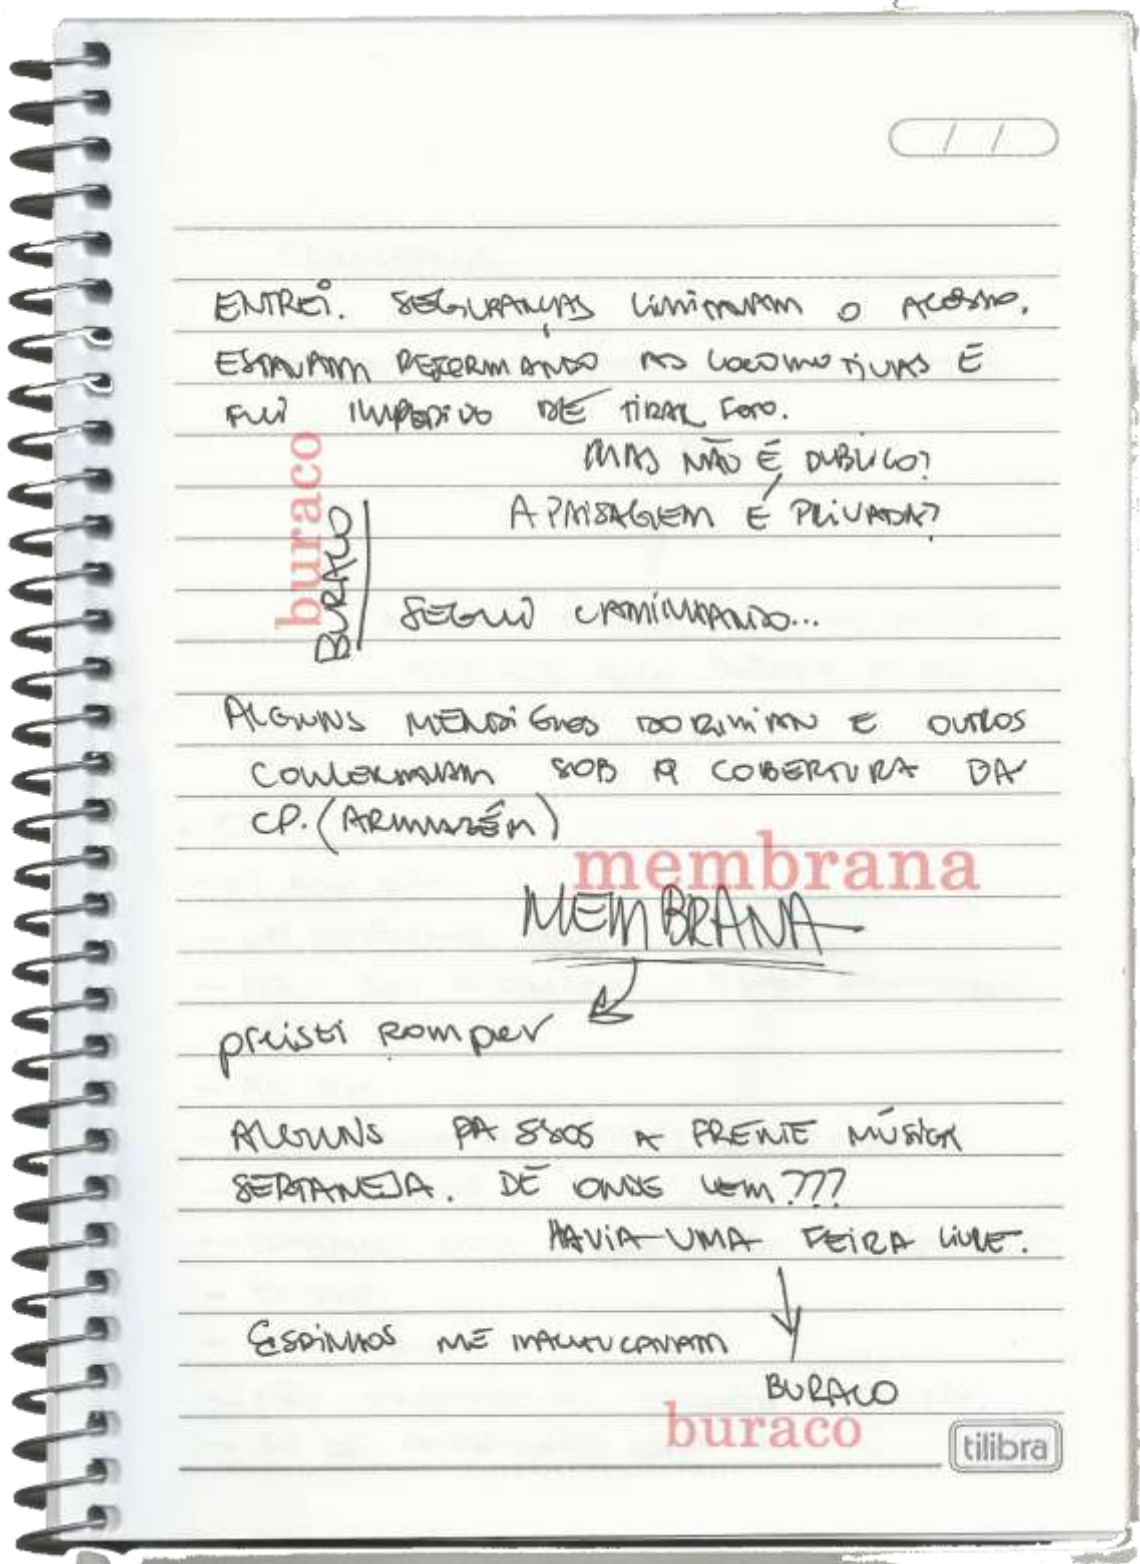 / /
ENTREI. SEGURANÇAS LIMITAVAM O ACESSO.
ESTAVAM REFORMANDO AS LOCOMOTIVAS E
FUI IMPEDIDO DE TIRAR FOTO.
MAS NÃO É PUBLICO?
A PAISAGEM É PRIVADA?
buraco
BURACO
SEGUI CAMINHANDO...
ALGUNS MENDIGOS DORMIAM E OUTROS
CONVERSAVAM SOB A COBERTURA DA
CP. (ARMAZÉM)
membrana
MEMBRANA
precisei romper
ALGUNS PASSOS A FRENTE MÚSICA
SERTANEJA. DE ONDE VEM???
HAVIA UMA FEIRA LIVRE.
ESPINHOS ME MACHUCAVAM
BURACO
buraco
tilibra